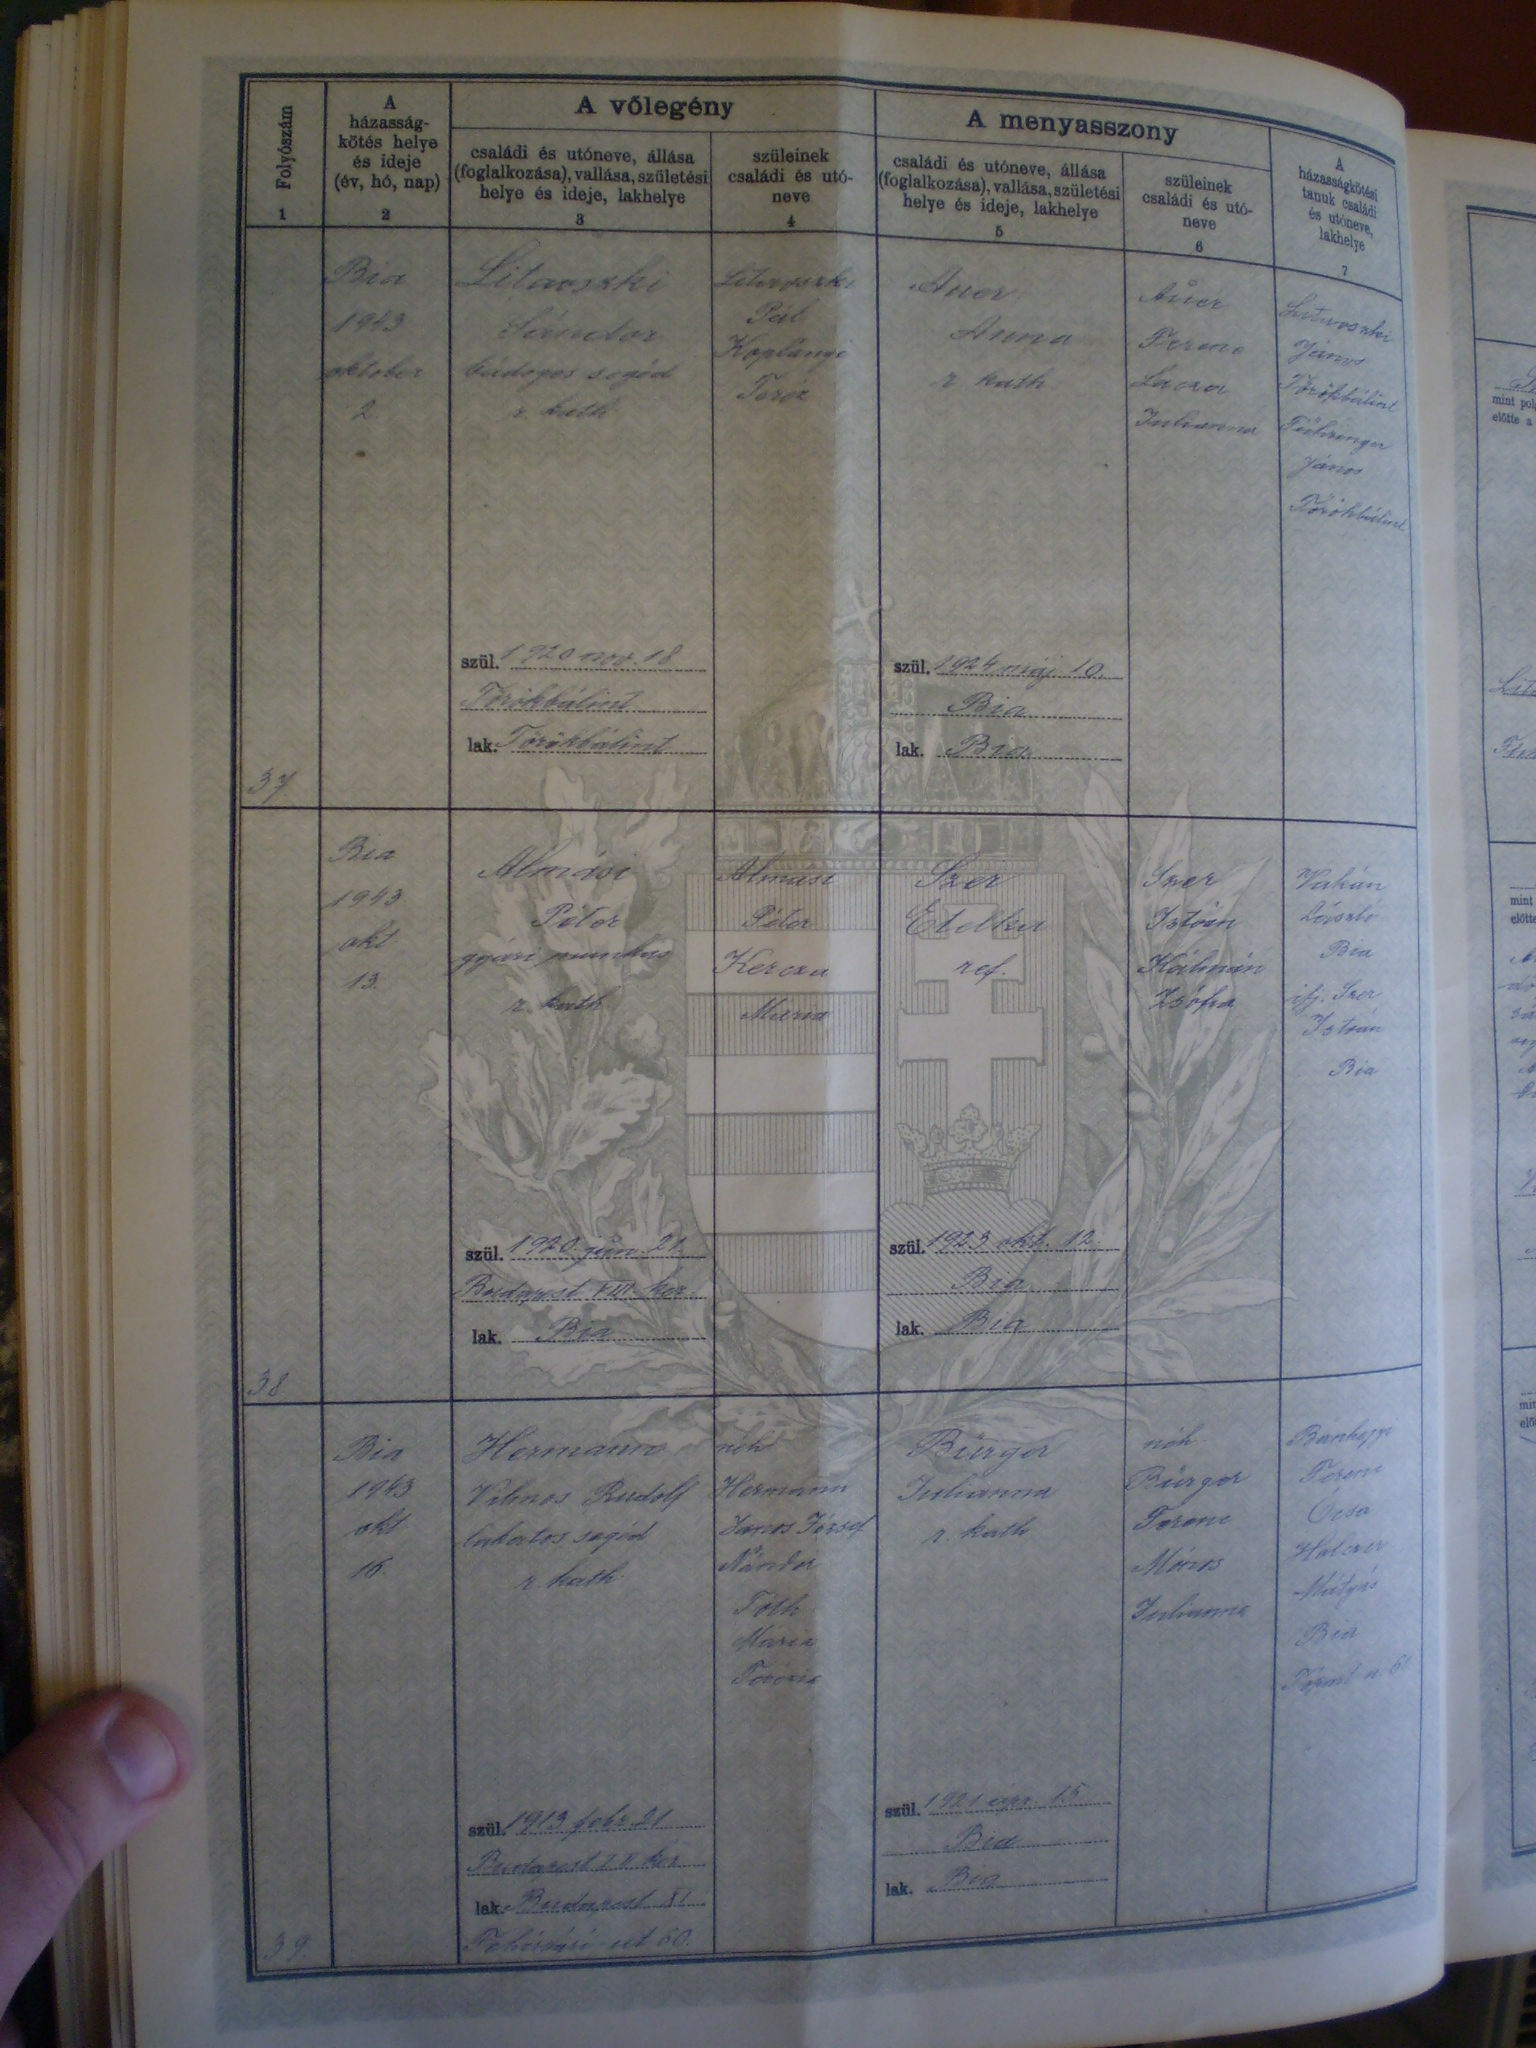 Folyószám
1
A
házasság-
kötés helye
és ideje
(év, hó, nap)
2
A vőlegény
családi és utóneve, állása
(foglalkozása), vallása, születési
helye és ideje, lakhelye
3
szüleinek
családi és utó-
neve
4
A menyasszony
családi és utóneve, állása
(foglalkozása), vallása, születési
helye és ideje, lakhelye
5
szüleinek
családi és utó-
neve
6
A
házasságkötési
tanuk családi
és utóneve,
lakhelye
7
37
Bia
1943
október
2
Litavszki
Sándor
bádogos segéd
r. kath
szül. 1920 nov. 18
Törökbálint
lak. Törökbálint
Litavszki
Pál
Koplányi
Teréz
Auer
Anna
r. kath
szül. 1924 máj. 10.
Bia
lak. Bia
Auer
Ferenc
Lacza
Julianna
Litavszki
János
Törökbálint
János
Törökbálint
38
Bia
1943
okt
13.
Almási
Péter
gyári munkás
r. kath
szül. 1920. jun. 21.
Budapest VIII. ker.
lak. Bia
Almási
Péter
Kercza
Mária
Szér
Etelka
ref.
szül. 1923 okt. 12.
Bia
lak. Bia
Szér
István
Kálmán
Zsófia
Vakán
László
Bia
ifj. Szér
István
Bia
39.
Bia
1943
okt
16.
Hermann
Vilmos Rudolf
lakatos segéd
r. kath.
szül. 1913 febr. 21
Budapest ker
lak. Budapest XI.
Fehérvári út 60.
néh
Hermann
János József
Nándor
Tóth
Mária
Terézia
Bürger
Julianna
r. kath
szül. 1921 ápr. 15
Bia
lak. Bia
néh.
Bürger
Ferenc
Mónos
Julianna
Bánhegyi
Ferenc
Ócsa
Halczer
Mátyás
Bia
mint
előtte a
mint
előtte